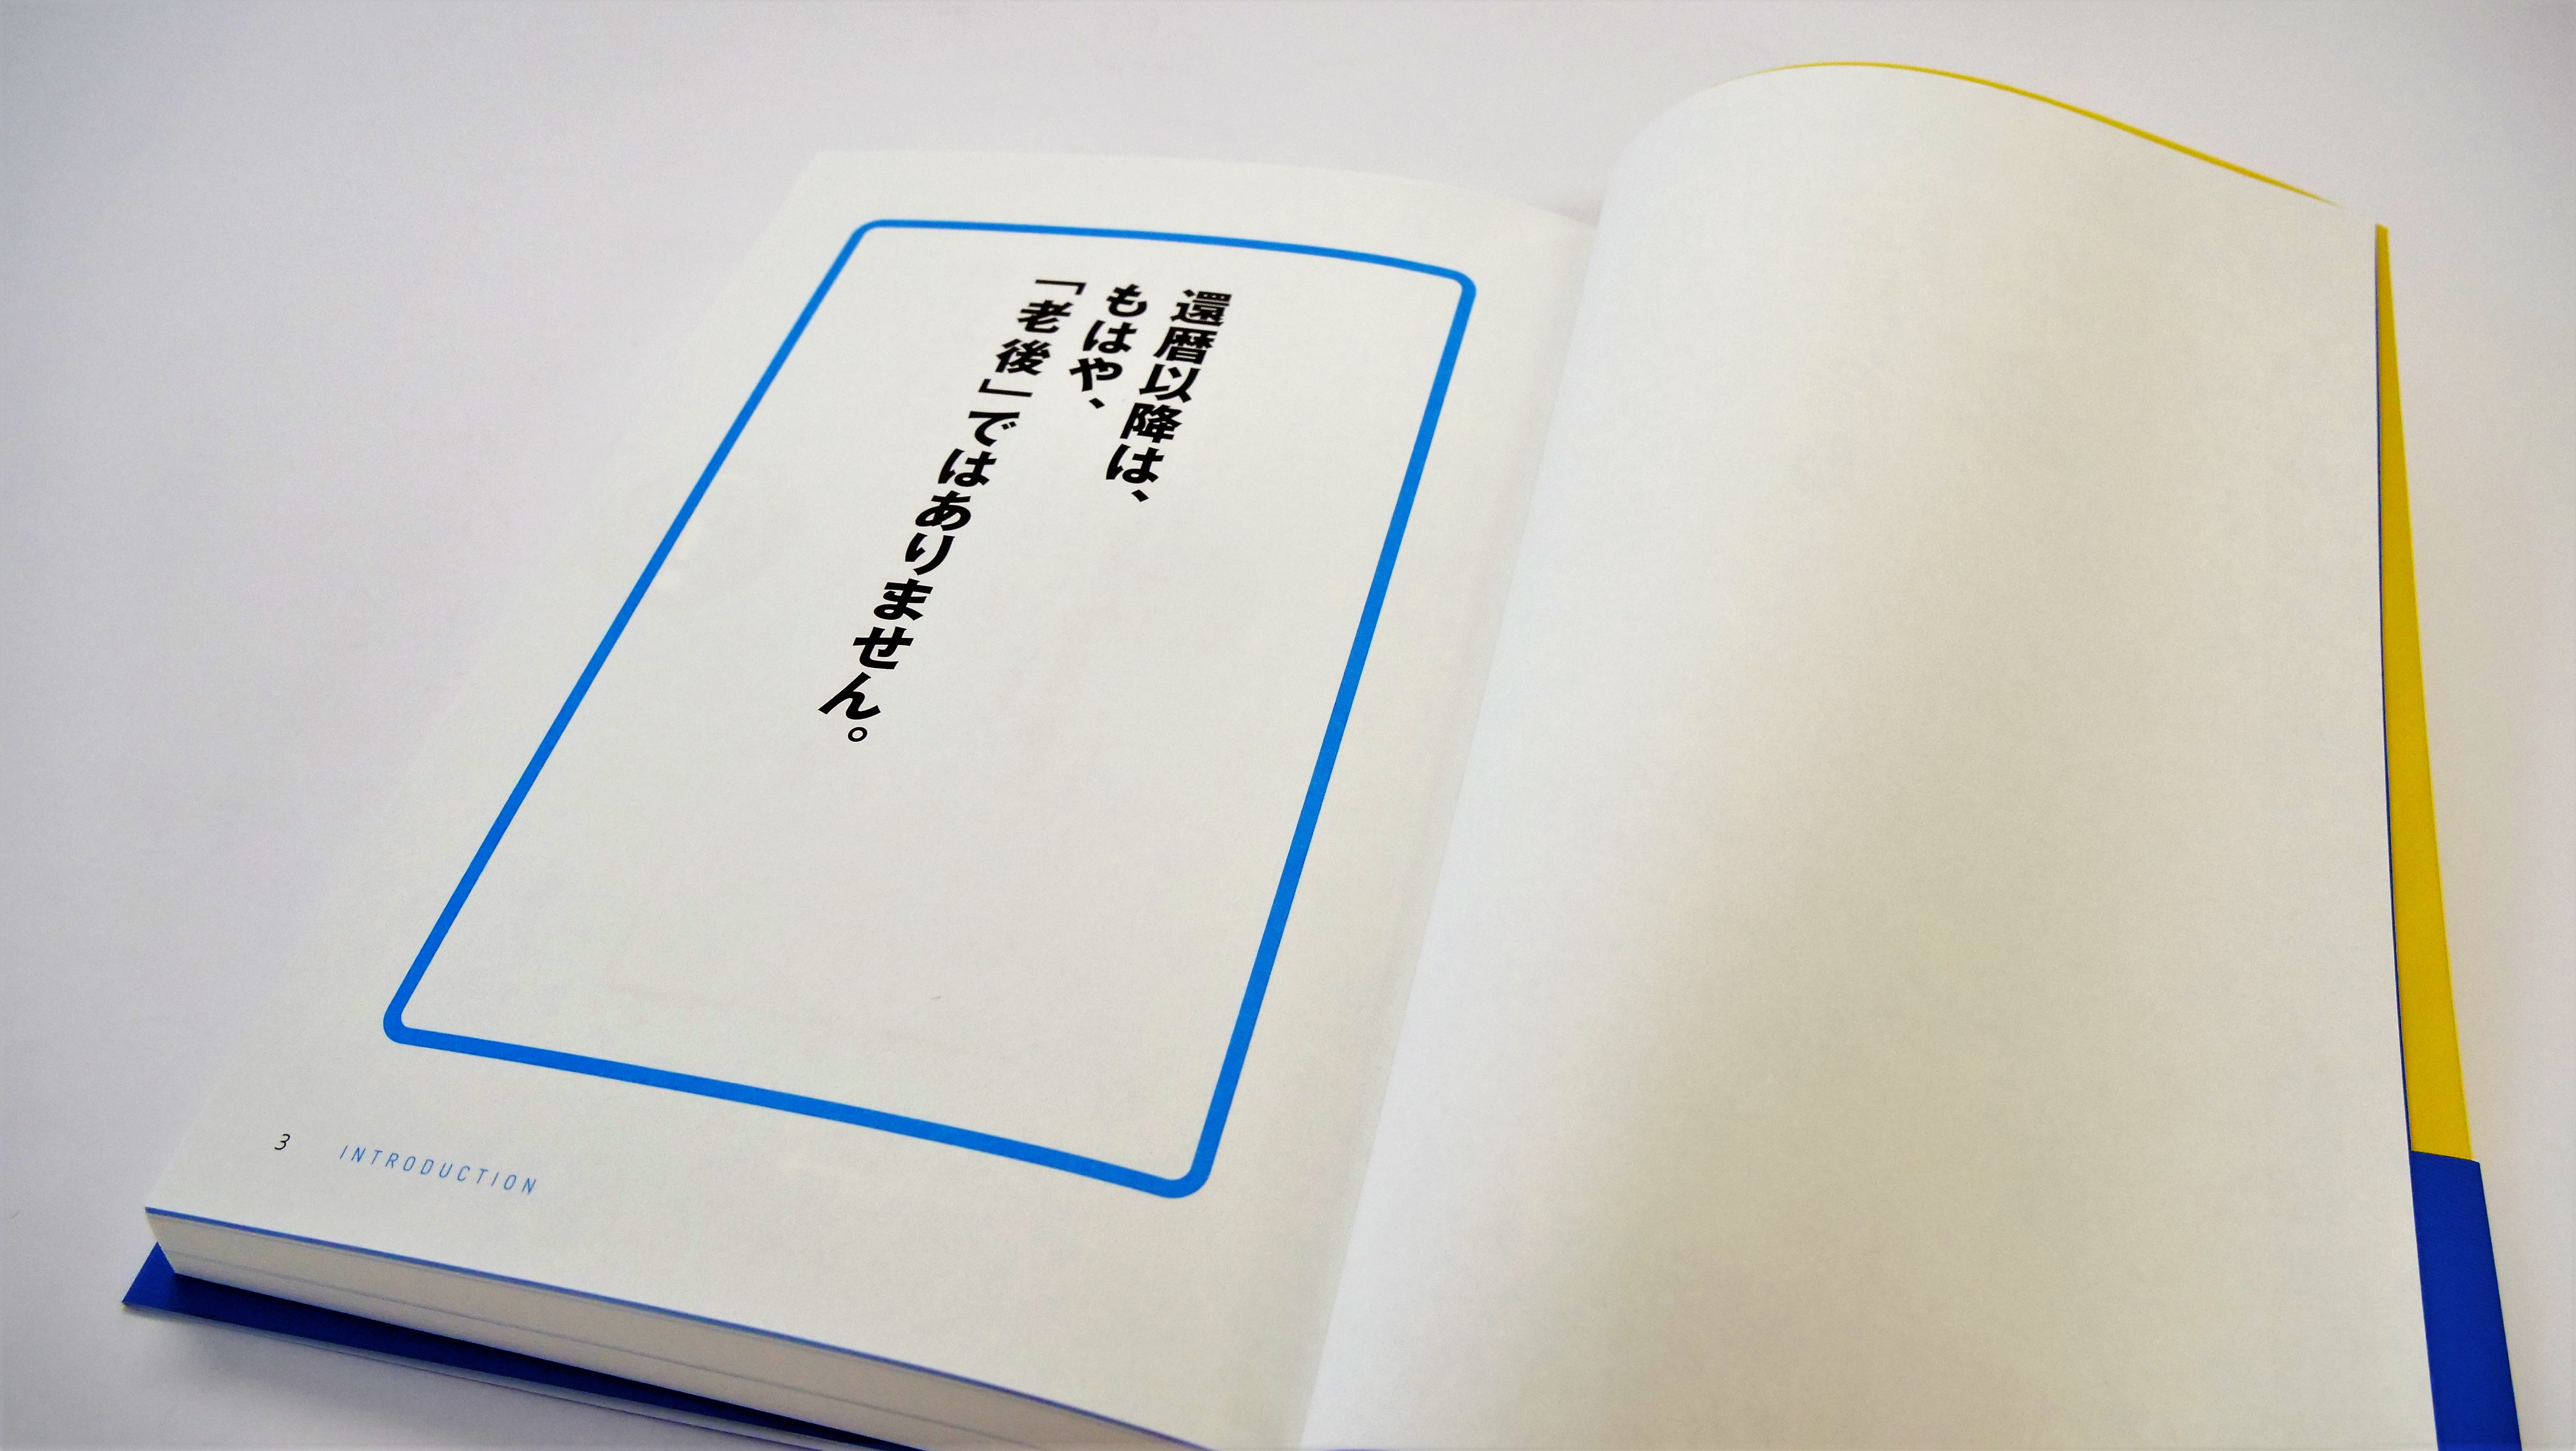 還暦以降は、
もはや、
「老後」ではありません。
3 INTRODUCTION